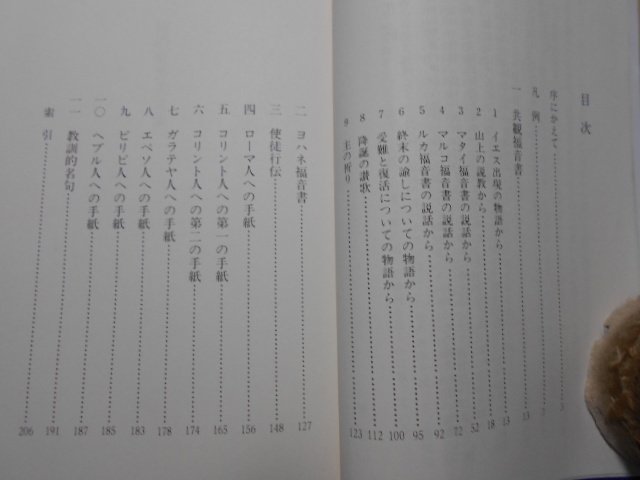 目次
序にかえて
凡例
一 共観福音書 13
1 イエス出現の物語から 13
2 山上の説教から 18
3 マタイ福音書の説話から 52
4 マルコ福音書の説話から 72
5 ルカ福音書の説話から 92
6 終末の諭しについての物語から 95
7 受難と復活についての物語から 100
8 降誕の讃歌 112
9 主の祈り 123
二 ヨハネ福音書 127
三 使徒行伝 148
四 ローマ人への手紙 156
五 コリント人への第一の手紙 165
六 コリント人への第二の手紙 174
七 ガラテヤ人への手紙 178
八 エペソ人への手紙 183
九 ピリピ人への手紙 185
一〇 ヘブル人への手紙 187
一一 教訓的名句 191
索引 206